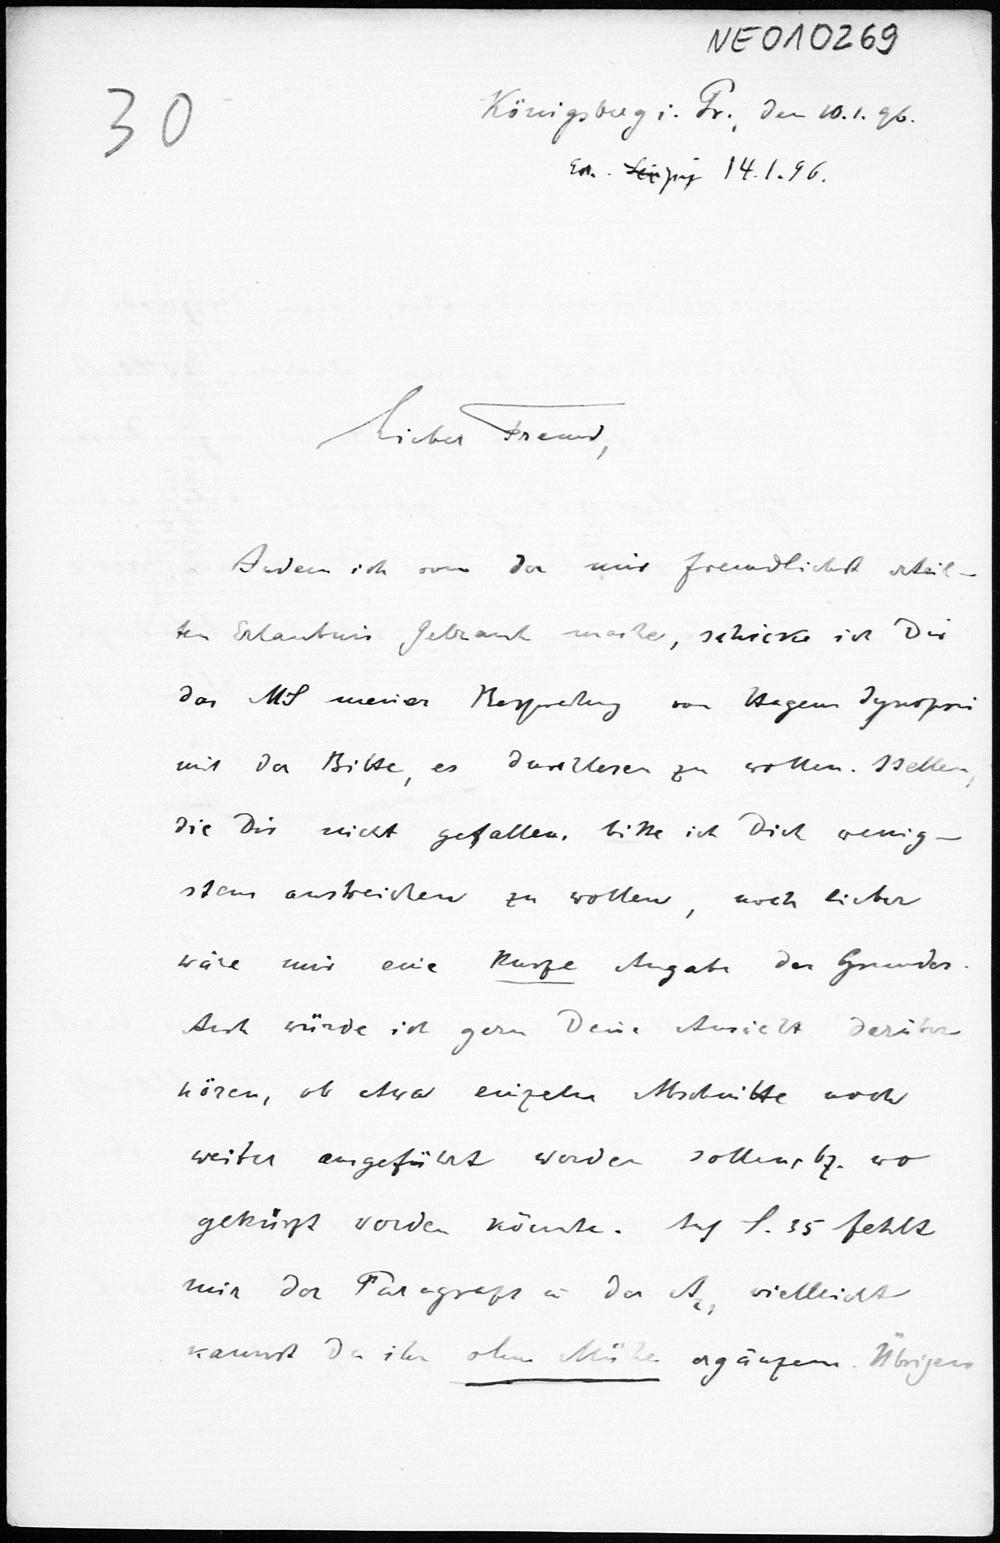 NE010269
30
Königsberg i. Pr., den 10.1.96.
14.1.96.
Lieber Freund,
Indem ich von der mir freundlichst erteil-
ten Erlaubnis Gebrauch mache, schicke ich Dir
das MS meiner Besprechung von Hagens Synopsis
mit der Bitte, es durchlesen zu wollen. Stellen,
die Dir nicht gefallen, bitte ich Dich wenig-
stens anstreichen zu wollen, noch lieber
wäre mir eine kurze Angabe des Grundes.
Auch würde ich gern Deine Ansicht darüber
hören, ob etwa einzelne Abschnitte noch
weiter ausgeführt werden sollen, bz. wo
gekürzt werden könnte. Auf S. 35 fehlt
mir der Paragraph in der A., vielleicht
kannst Du ihn ohne Mühe ergänzen. Übrigens